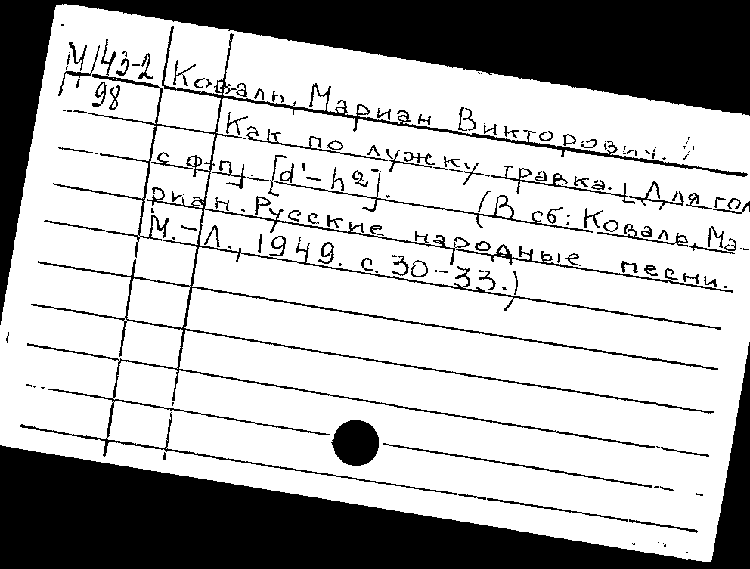 М/43-2
98
Коваль, Мариан Викторович.
Как по лужку травка. [Для гол.
с ф-п]. [d¹-h²]. (В сб: Коваль, Ма-
риан. Русские народные песни.
М.-Л., 1949. с. 30-33.)